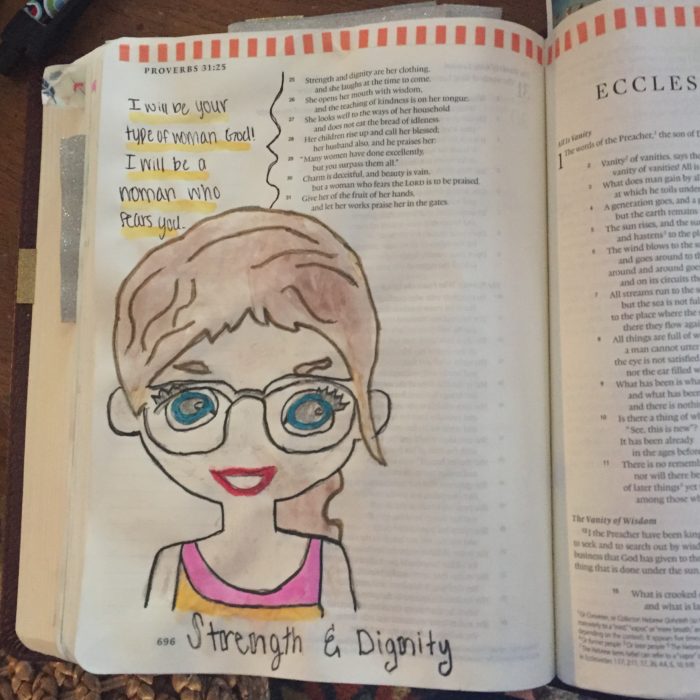 PROVERBS 31:25
I will be your
type of woman God!
I will be a
woman who
fears you.
25 Strength and dignity are her clothing,
and she laughs at the time to come.
26 She opens her mouth with wisdom,
and the teaching of kindness is on her tongue.
27 She looks well to the ways of her household
and does not eat the bread of idleness.
28 Her children rise up and call her blessed;
her husband also, and he praises her:
29 "Many women have done excellently,
but you surpass them all."
30 Charm is deceitful, and beauty is vain,
but a woman who fears the LORD is to be praised.
31 Give her of the fruit of her hands,
and let her works praise her in the gates.
696
Strength & Dignity
ECCLES
All Is Vanity
1 The words of the Preacher, the son of
2 Vanity of vanities, says th
vanity of vanities! All is
3 What does man gain by al
at which he toils under
4 A generation goes, and a
but the earth remains
5 The sun rises, and the su
and hastens to the pl
6 The wind blows to the s
and goes around to th
around and around goe
and on its circuits th
7 All streams run to the s
but the sea is not ful
to the place where the
there they flow aga
8 All things are full of w
a man cannot utter
the eye is not satisfied
nor the ear filled w
9 What has been is wh
and what has been
and there is nothi
10 Is there a thing of wh
"See, this is new"?
It has been already
in the ages before
11 There is no rememb
nor will there be
of later things yet
among those wh
The Vanity of Wisdom
12 I the Preacher have been king
to seek and to search out by wisd
business that God has given to the
thing that is done under the sun
15 What is crooked
and what is l